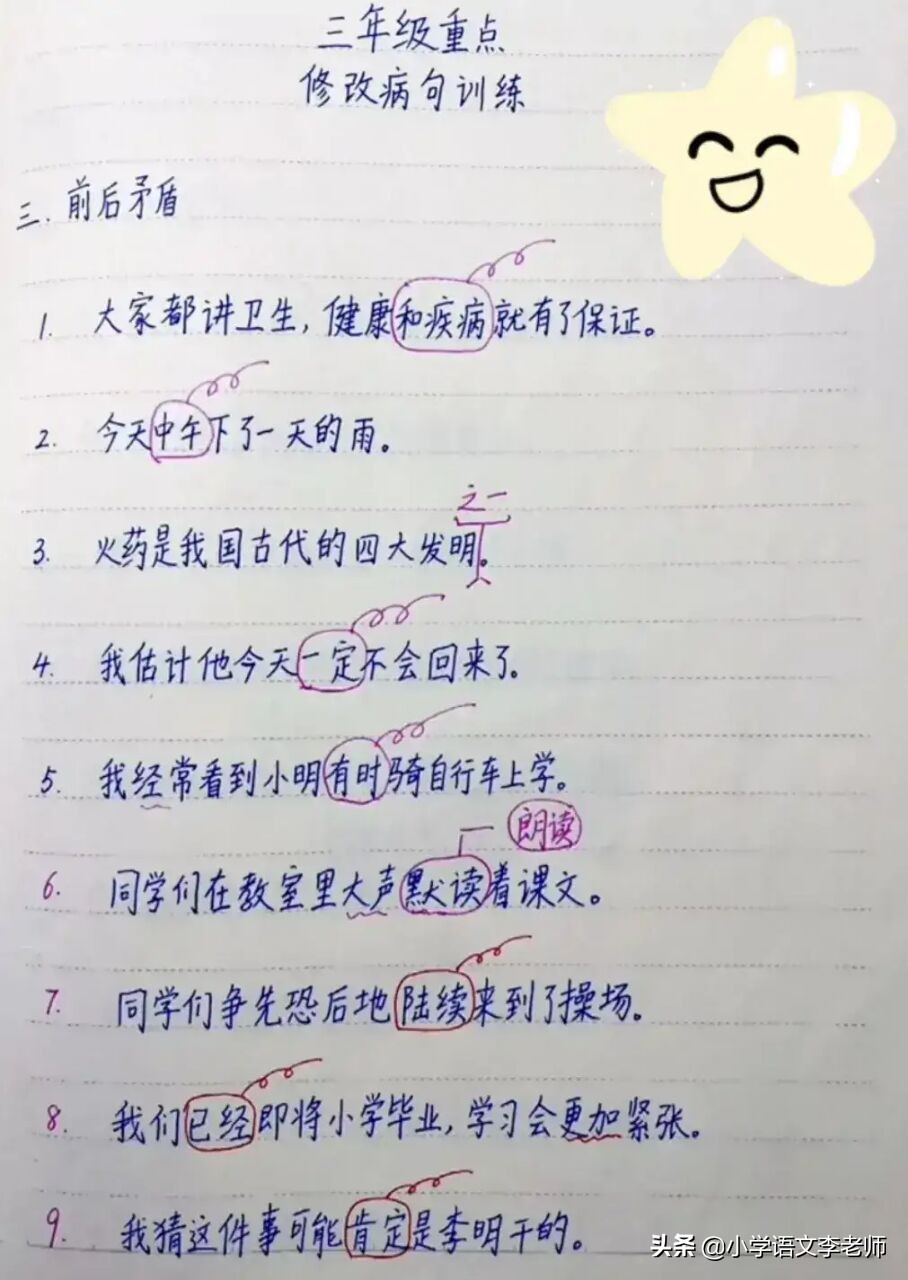 三年级重点
修改病句训练
三. 前后矛盾
1. 大家都讲卫生，健康和疾病就有了保证。
2. 今天中午下了一天的雨。
之一
3. 火药是我国古代的四大发明。
4. 我估计他今天一定不会回来了。
5. 我经常看到小明有时骑自行车上学。
朗读
6. 同学们在教室里大声默读着课文。
7. 同学们争先恐后地陆续来到了操场。
8. 我们已经即将小学毕业，学习会更加紧张。
9. 我猜这件事可能肯定是李明干的。
头条 @小学语文李老师